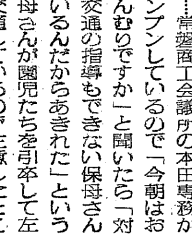 常磐商工会議所の本田専務が
ンプンしているので「今朝はお
んむりですか」と聞いたら「対
交通の指導もできない保母さん
いるんだからあきれた」という
母さんが園児たちを引卒して左